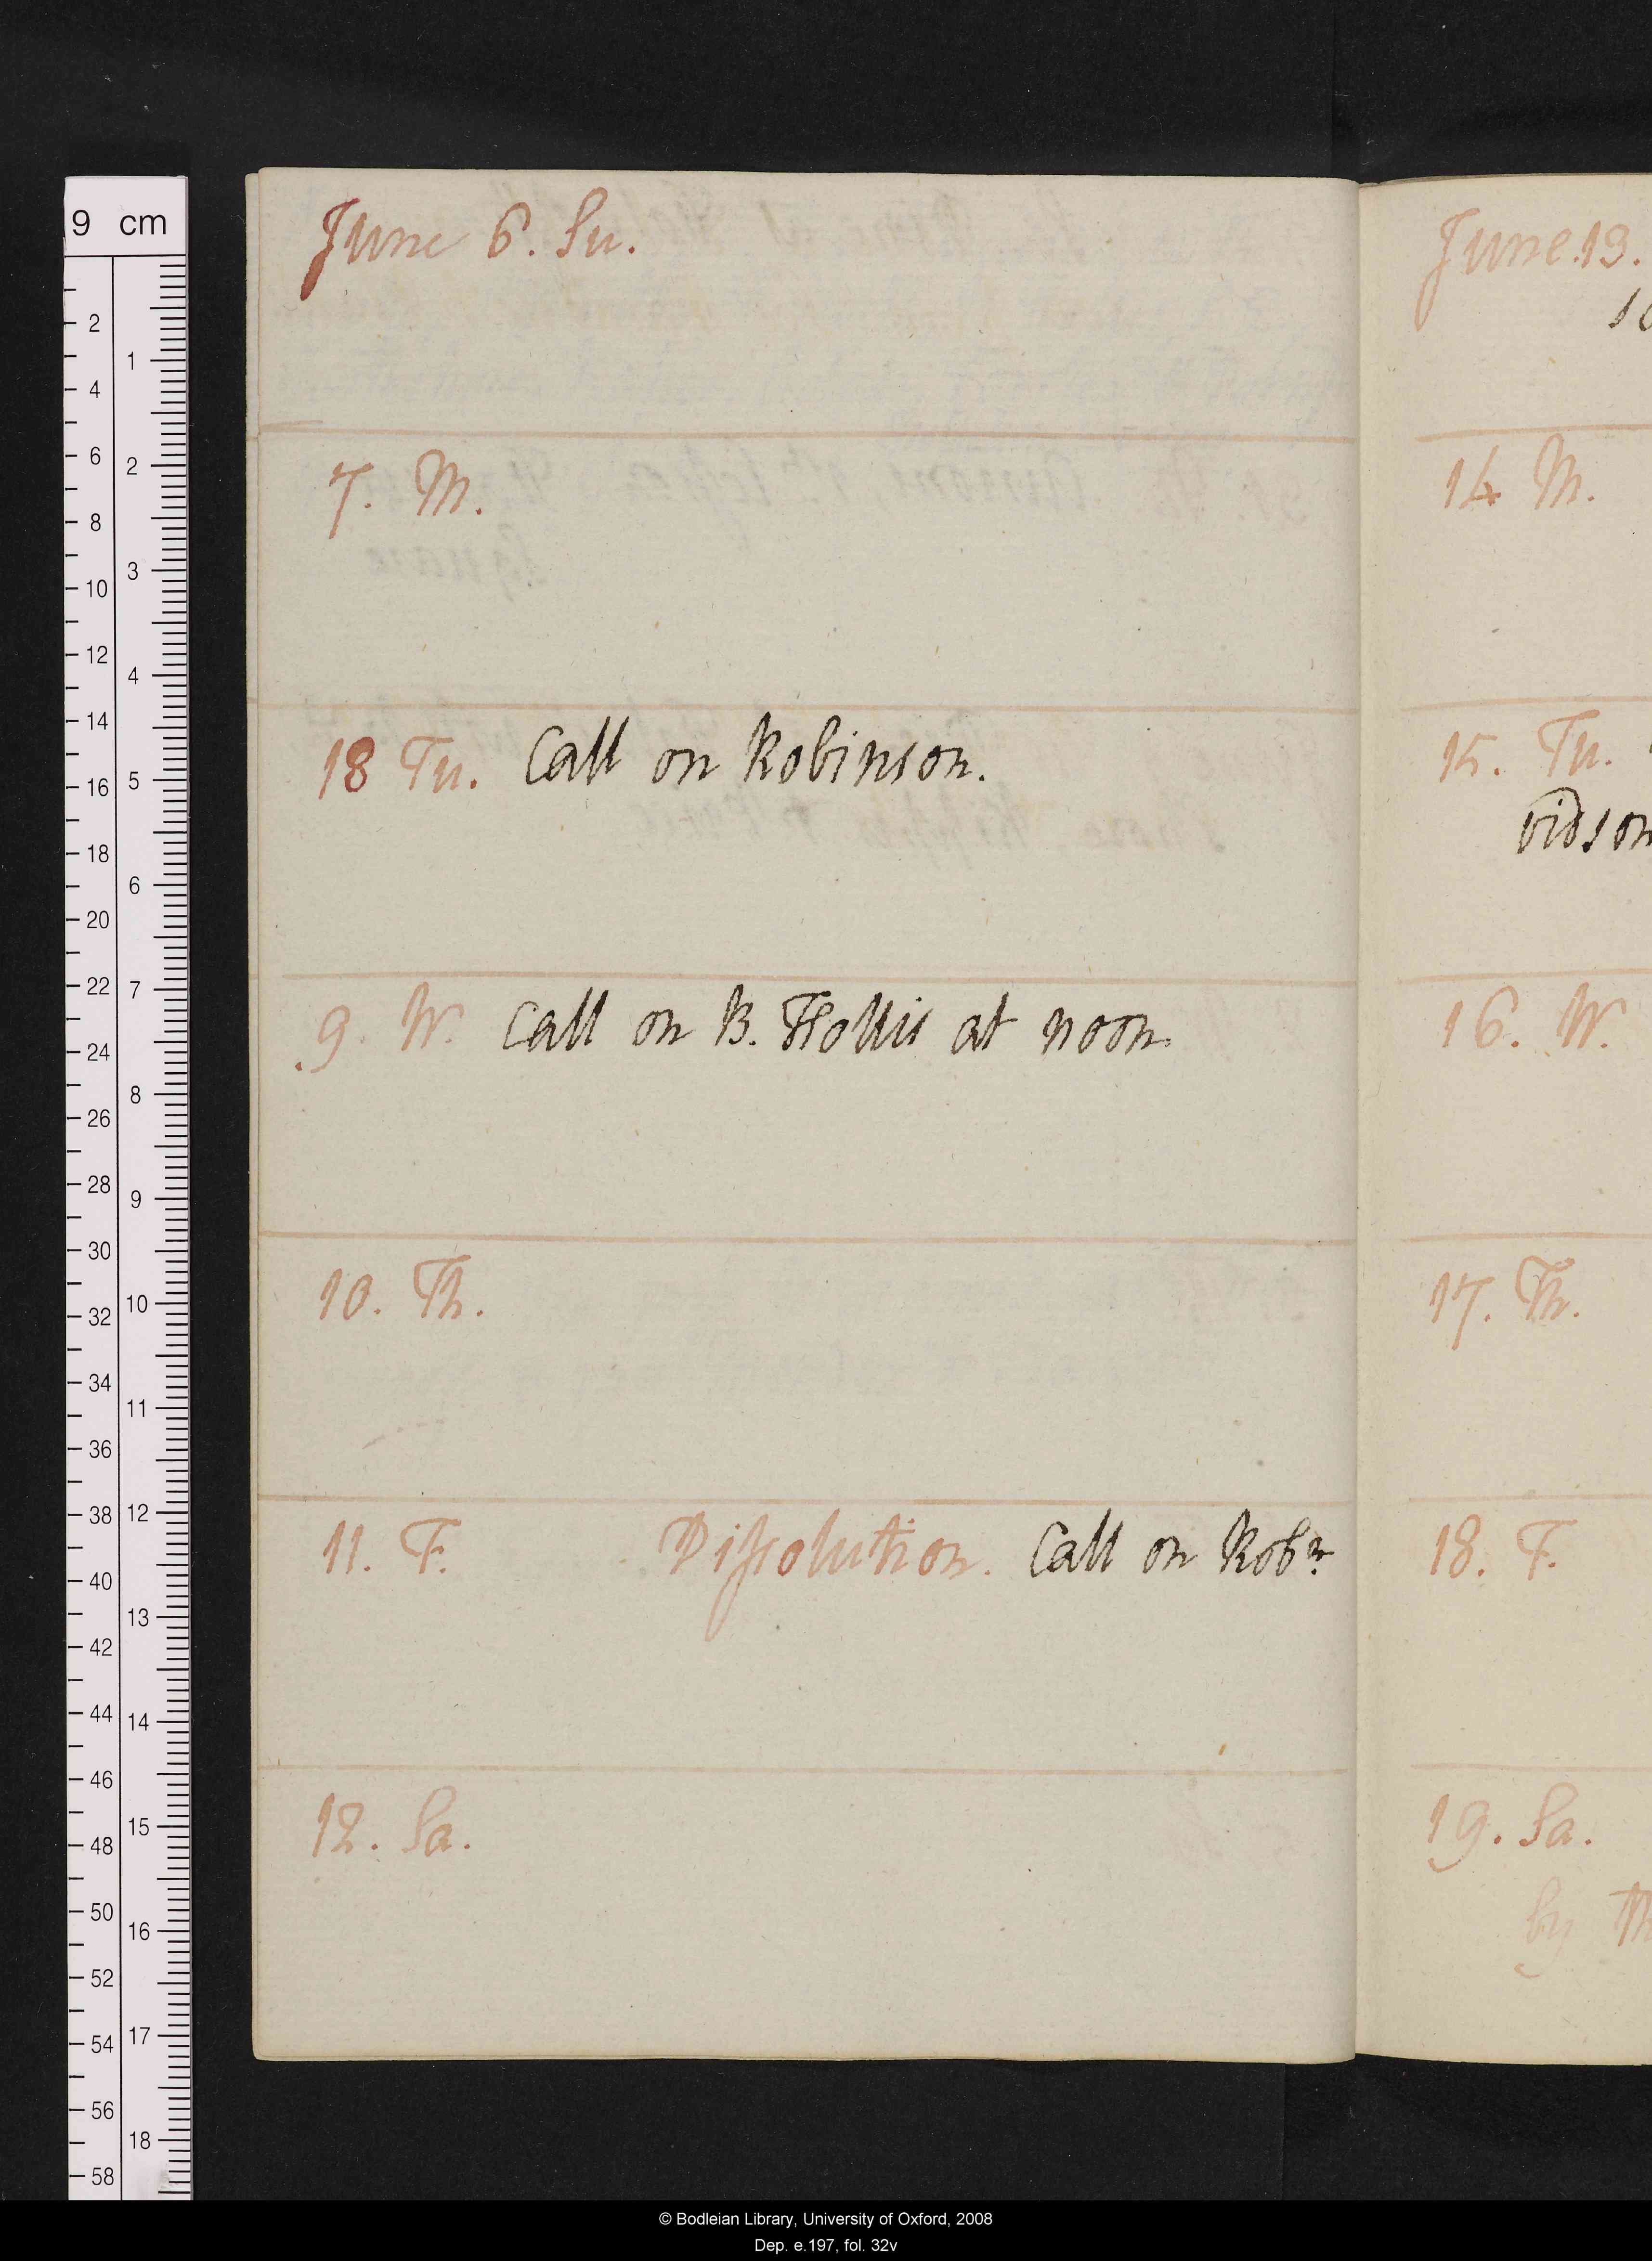 June 6. Su.
7. M.
18 Tu. Call on Robinson.
9. W. Call on B. Hollis at noon.
10. Th.
11. F. Dissolution. Call on Robn.
12. Sa.
June 13.
14 M.
15. Tu.
vidson
16. W.
17. Th.
18. F.
19. Sa.
by
9 cm
2
4
6
8
10
12
14
16
18
20
22
24
26
28
30
32
34
36
38
40
42
44
46
48
50
52
54
56
58
1
2
3
4
5
6
7
8
9
10
11
12
13
14
15
16
17
18
© Bodleian Library, University of Oxford, 2008
Dep. e.197, fol. 32v